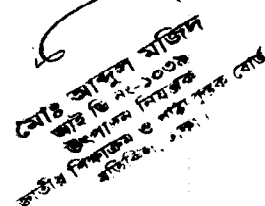 মোঃ আব্দুল মজিদ
আই ডি নং-১০৩৯
উৎপাদন নিয়ন্ত্রক
জাতীয় শিক্ষাক্রম ও পাঠ্য পুস্তক বোর্ড
মতিঝিল, ঢাকা।